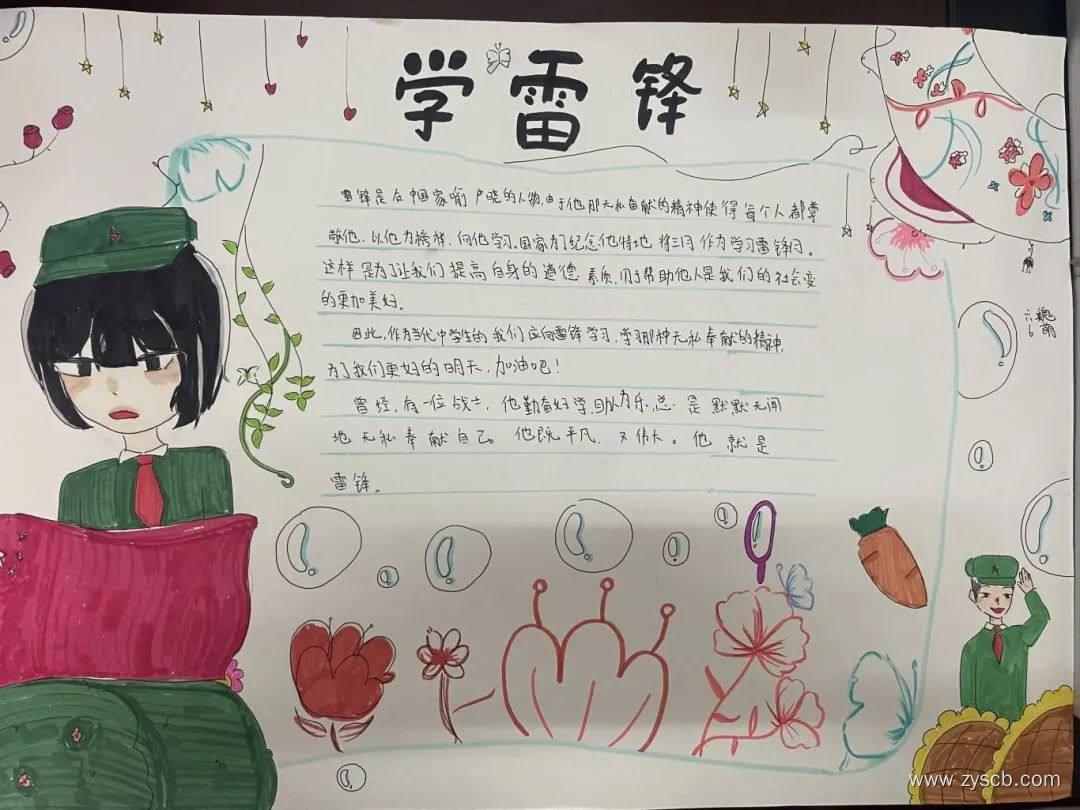 学雷锋
雷锋是在中国家喻户晓的人物,由于他那无私奋献的精神使得每个人都尊
敬他,以他为榜样,向他学习。国家为了纪念他特地将三月作为学习雷锋月。
这样是为了让我们提高自身的道德素质,用于帮助他人是我们的社会变
的更加美好。
因此,作为当代中学生的我们应向雷锋学习,学习那种无私奉献的精神,
为了我们更好的明天,加油吧!
曾经,有一位战士,他勤奋好学,助人为乐,总是默默无闻
地无私奉献自己。他既平凡,又伟大。他就是
雷锋。
六 魏
6 萌
www.zyscb.com